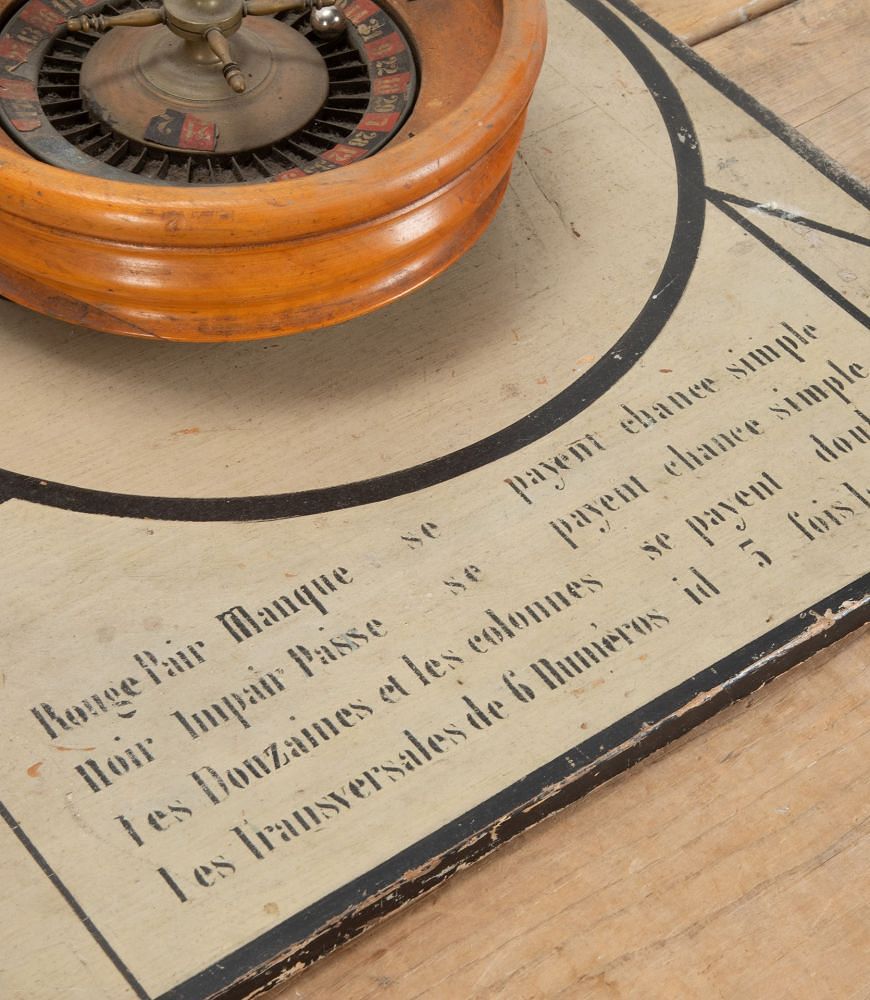 Rouge Pair Manque se payent chance simple
Noir Impair Passe se payent chance simple
Les Douzaines et les colonnes se payent
Les Transversales de 6 Numéros id 5 fois
7
9
22
20
7
28